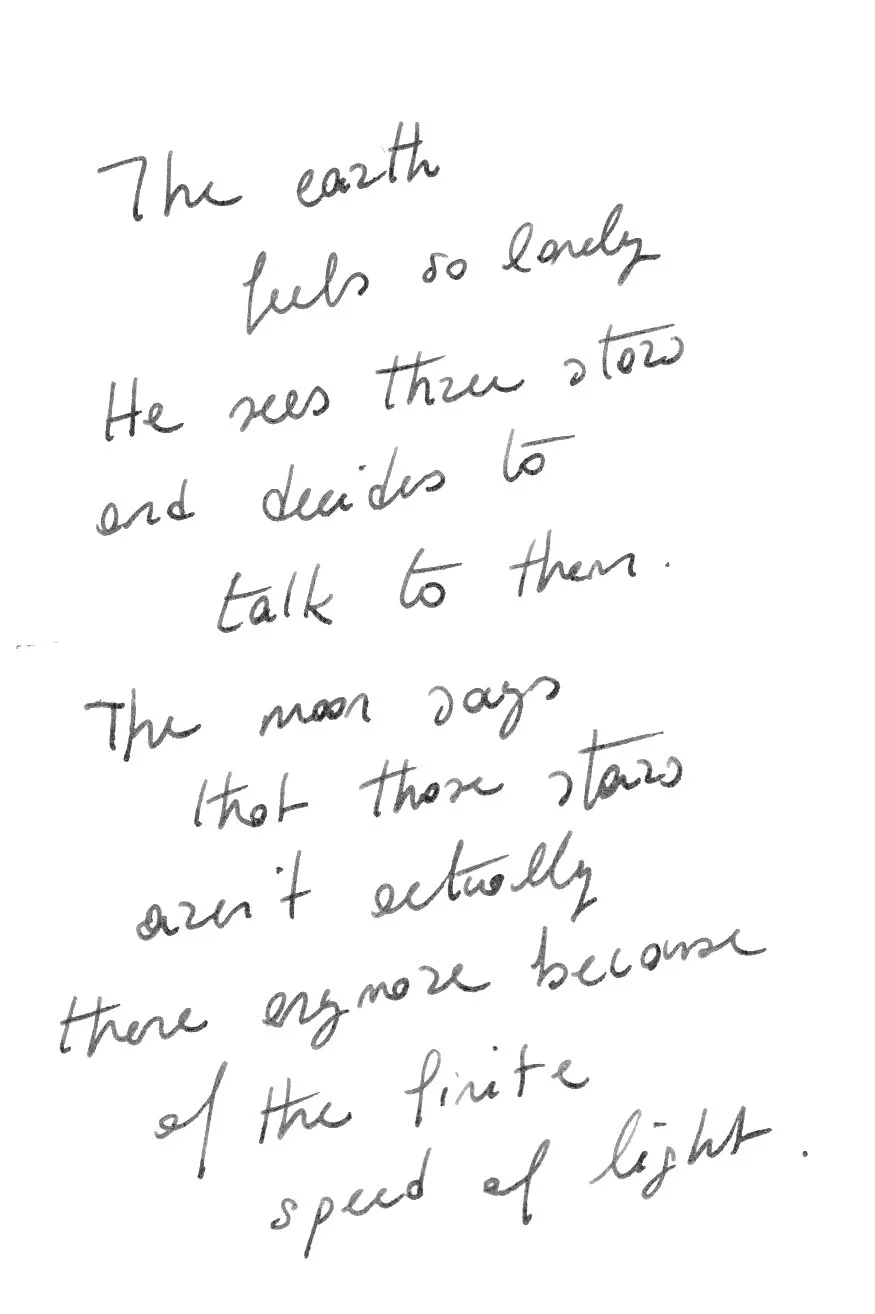 The earth
feels so lonely
He sees three stars
and decides to
talk to them.
The moon says
that those stars
aren't actually
there anymore because
of the finite
speed of light.